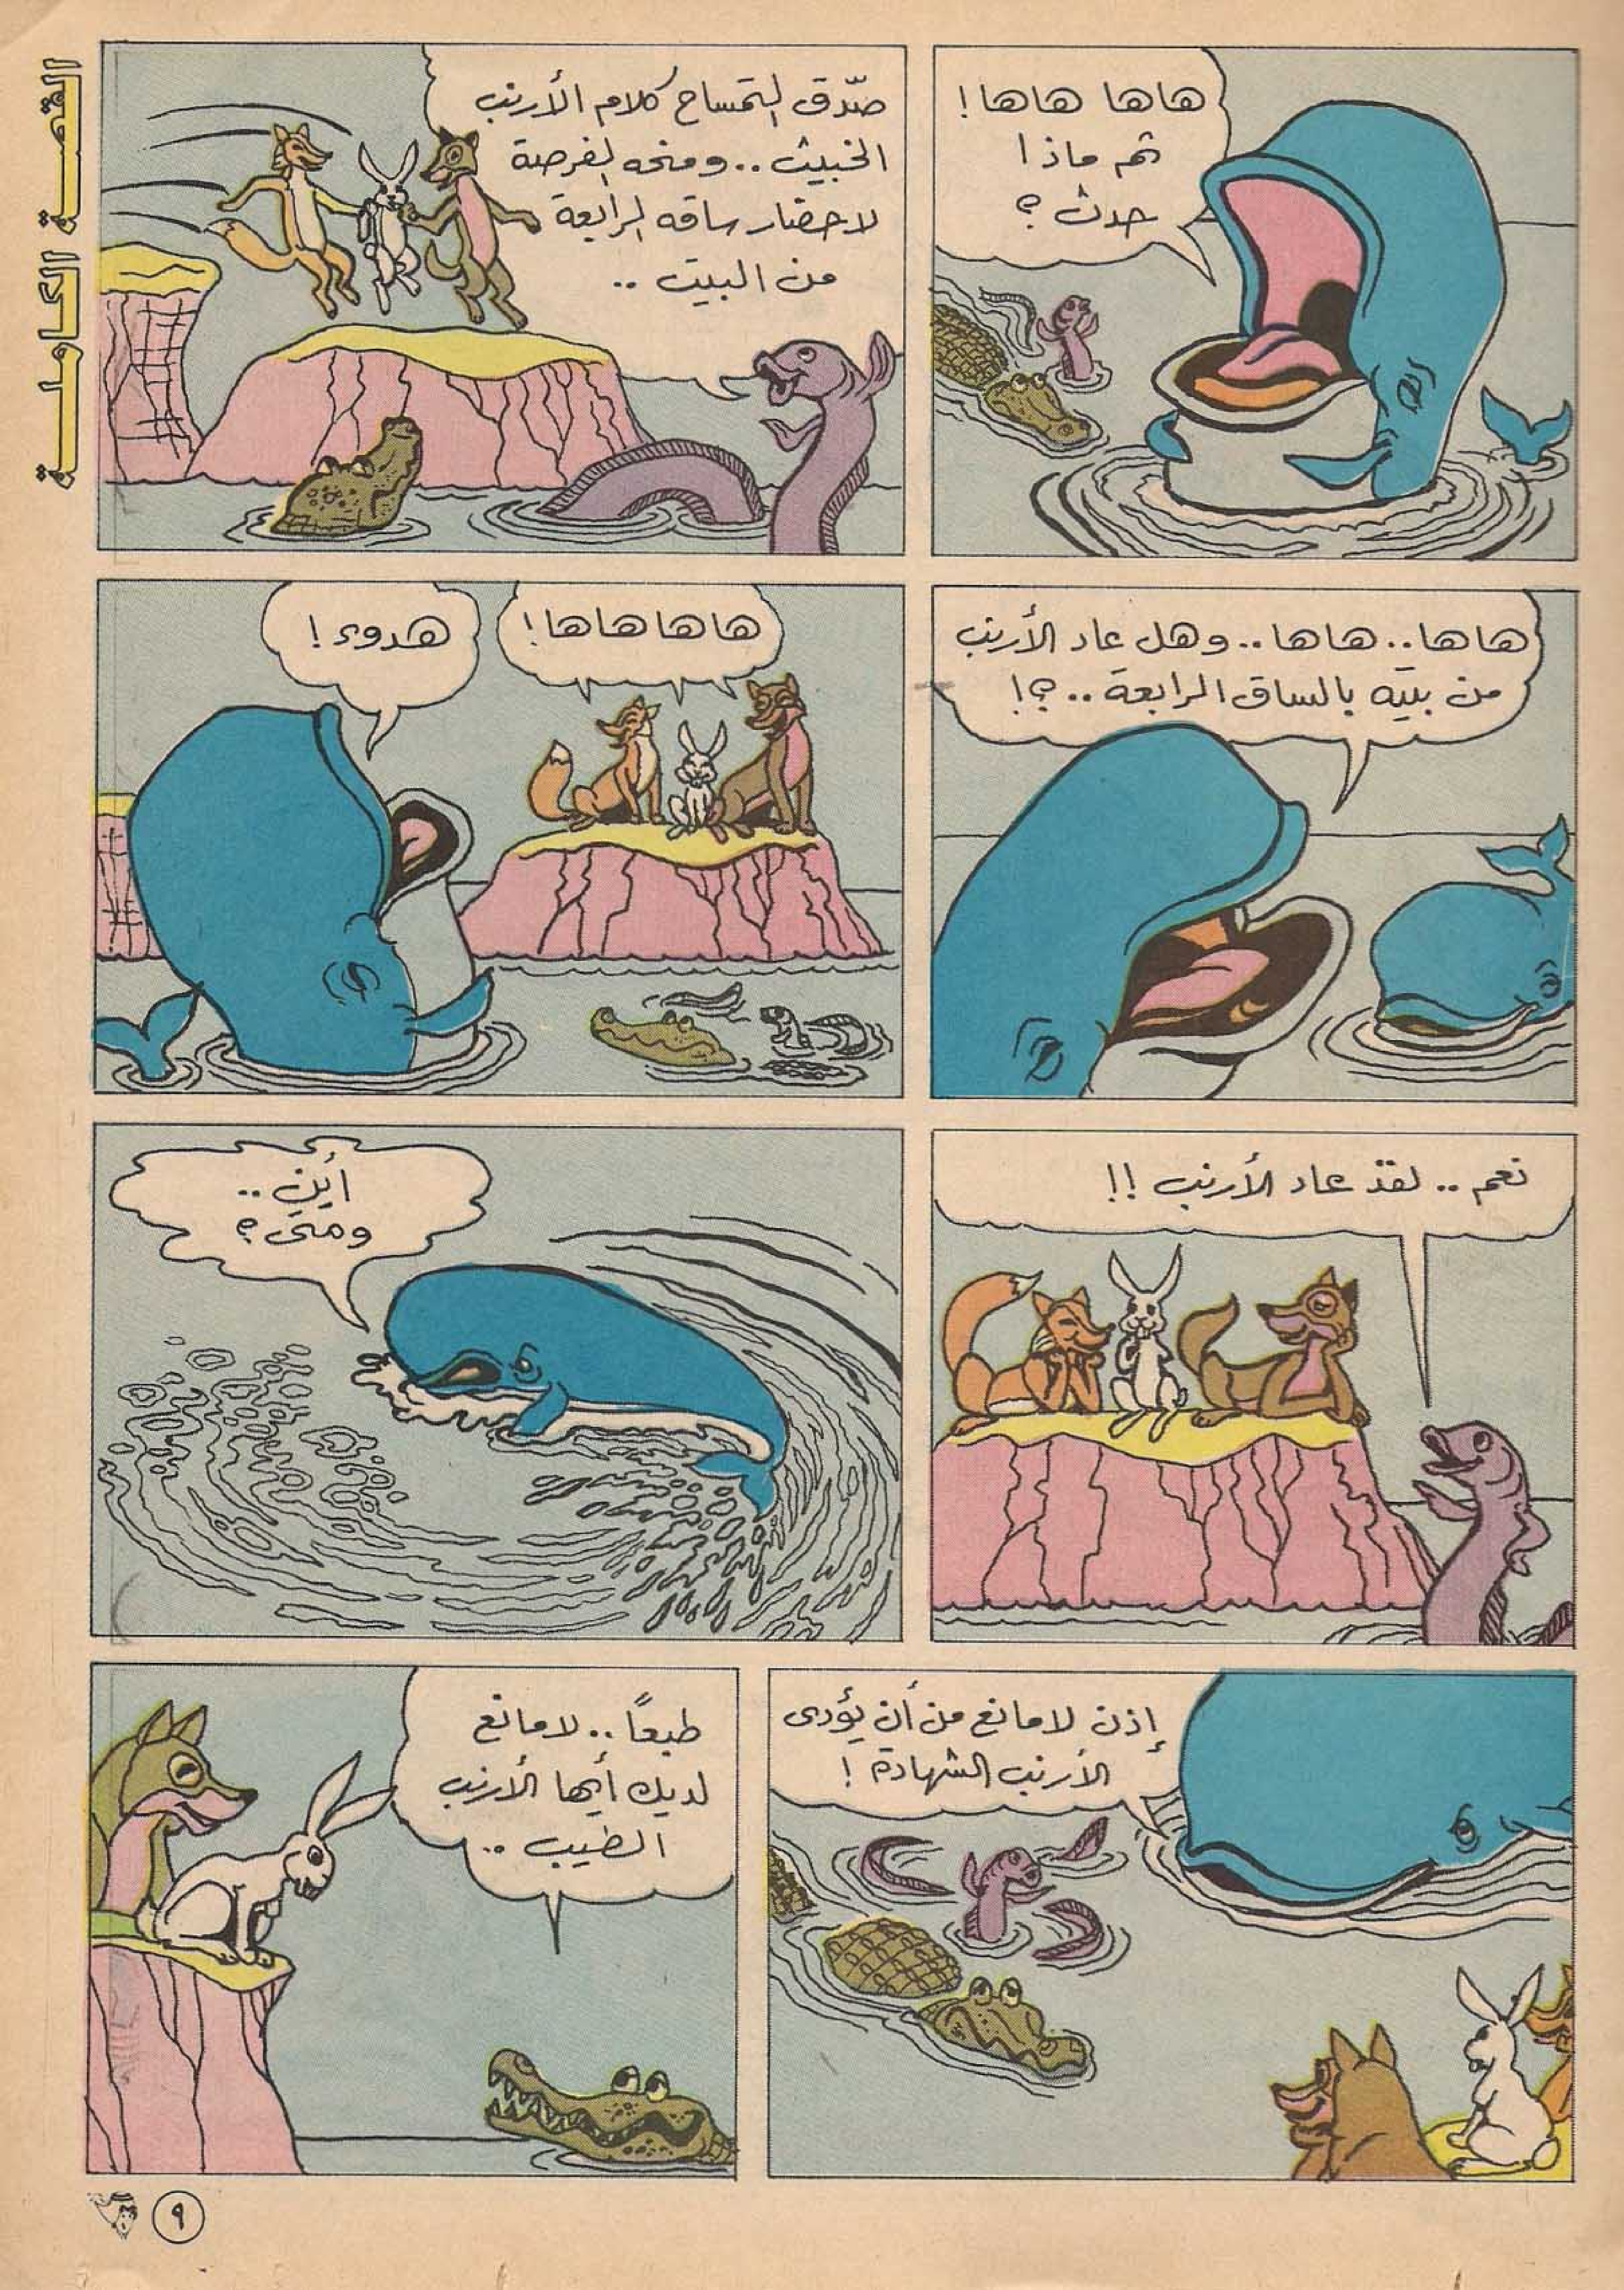 القصة الكاملة
هاها هاها!
ثم ماذا
حدث؟
صدّق التمساح كلام الأرنب
الخبيث.. ومنحه الفرصة
لاحضار ساقه الرابعة
من البيت ..
هاها.. هاها.. وهل عاد الأرنب
من بيته بالساق الرابعة..؟!
هاهاهاها!
هدوء!
نعم.. لقد عاد الأرنب!!
أين..
ومتى؟
إذن لامانع من أن يؤدى
الأرنب الشهادة!
طبعاً.. لامانع
لديك أيها الأرنب
الطيب..
٩